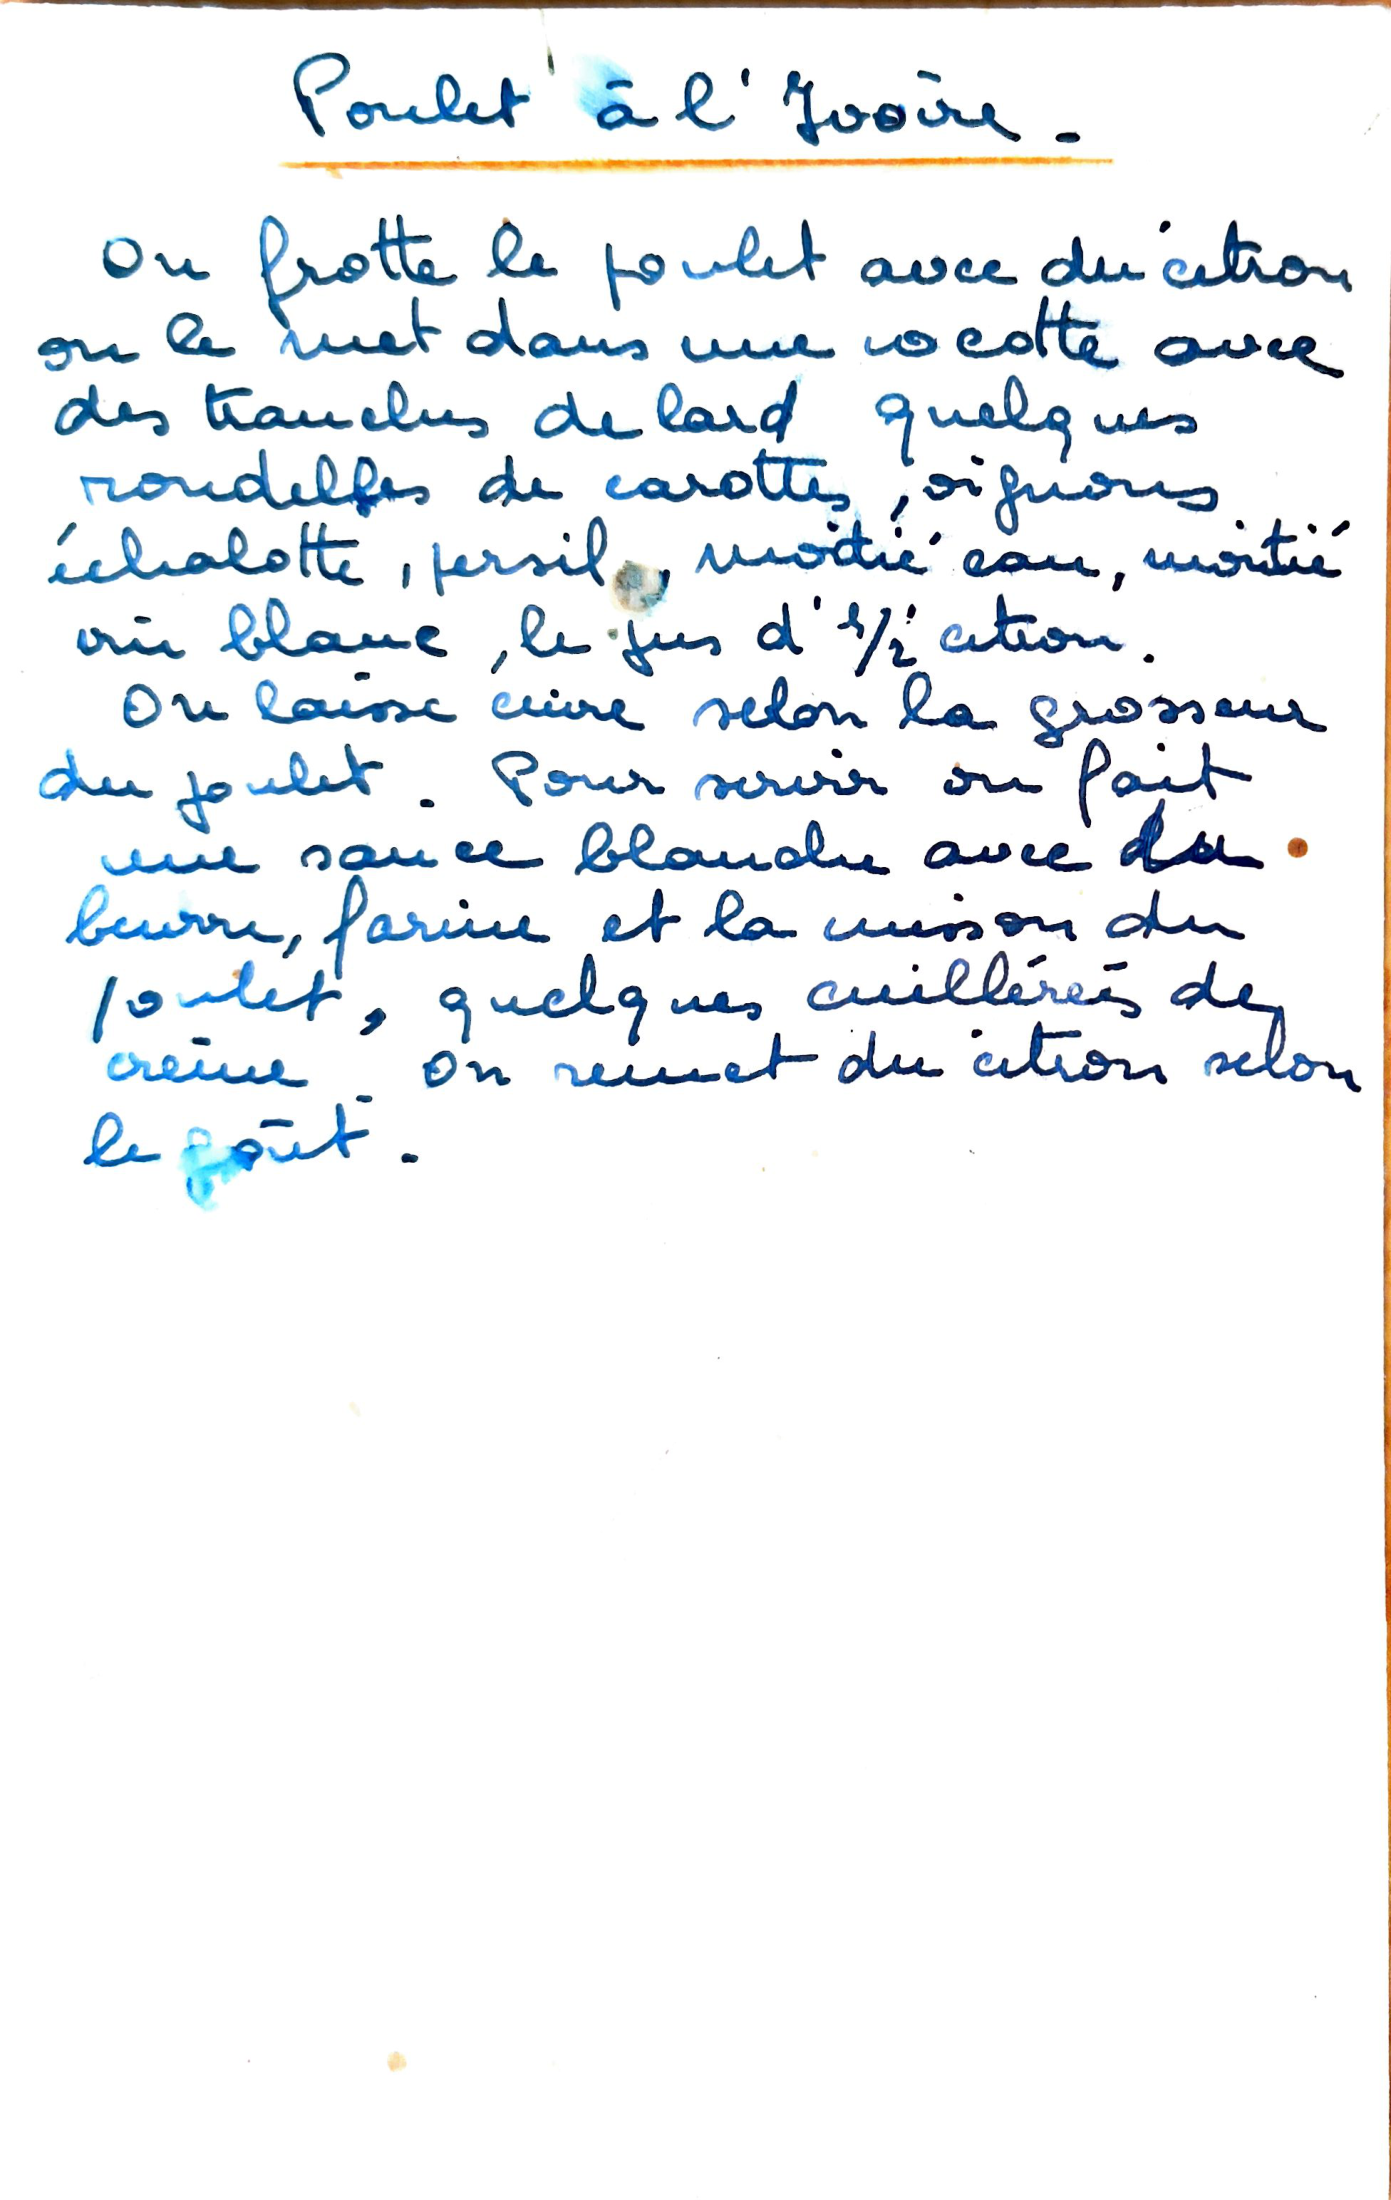 Poulet à l'Ivoire.
On frotte le poulet avec du citron
on le met dans une cocotte avec
des tranches de lard quelques
rondelles de carottes, oignons
échalotte, persil, moitié eau, moitié
vin blanc, le jus d'1/2 citron.
On laisse cuire selon la grosseur
du poulet. Pour servir on fait
une sauce blanche avec du
beurre, farine et la cuisson du
poulet, quelques cuillérées de
crème. On remet du citron selon
le goût.